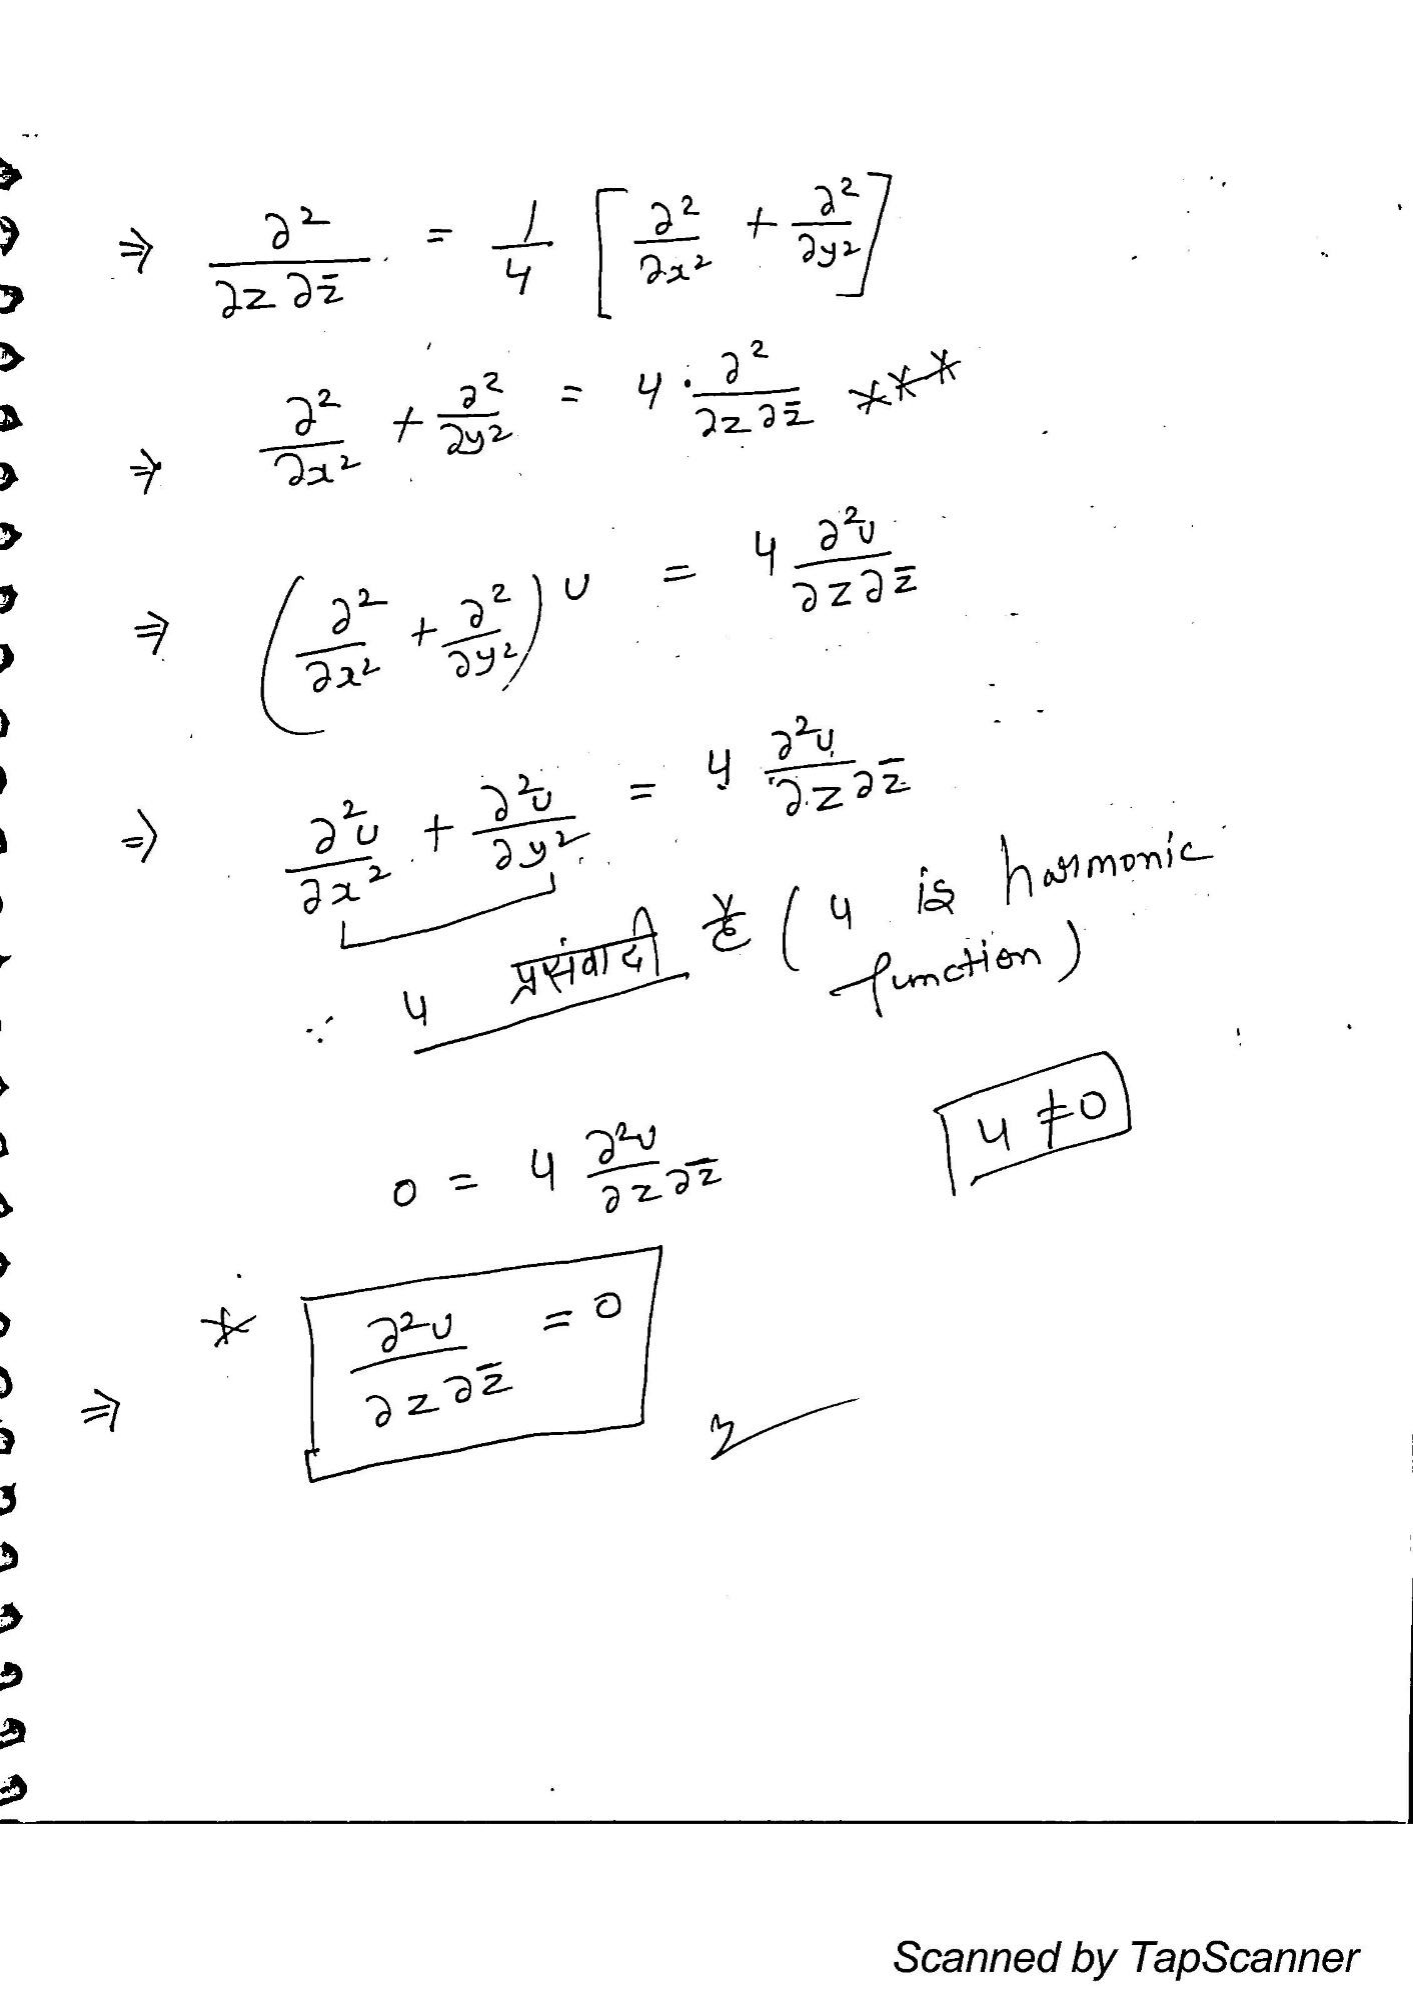 ⇒ ∂²/∂z ∂z̄ = 1/4 [∂²/∂x² + ∂²/∂y²]
⇒ ∂²/∂x² + ∂²/∂y² = 4 · ∂²/∂z ∂z̄ ***
⇒ (∂²/∂x² + ∂²/∂y²) u = 4 ∂²u/∂z ∂z̄
⇒ ∂²u/∂x² + ∂²u/∂y² = 4 ∂²u/∂z ∂z̄
∵ u प्रसंवादी है (u is harmonic
function)
0 = 4 ∂²u/∂z ∂z̄
4 ≠ 0
* ⇒ ∂²u/∂z ∂z̄ = 0
Scanned by TapScanner